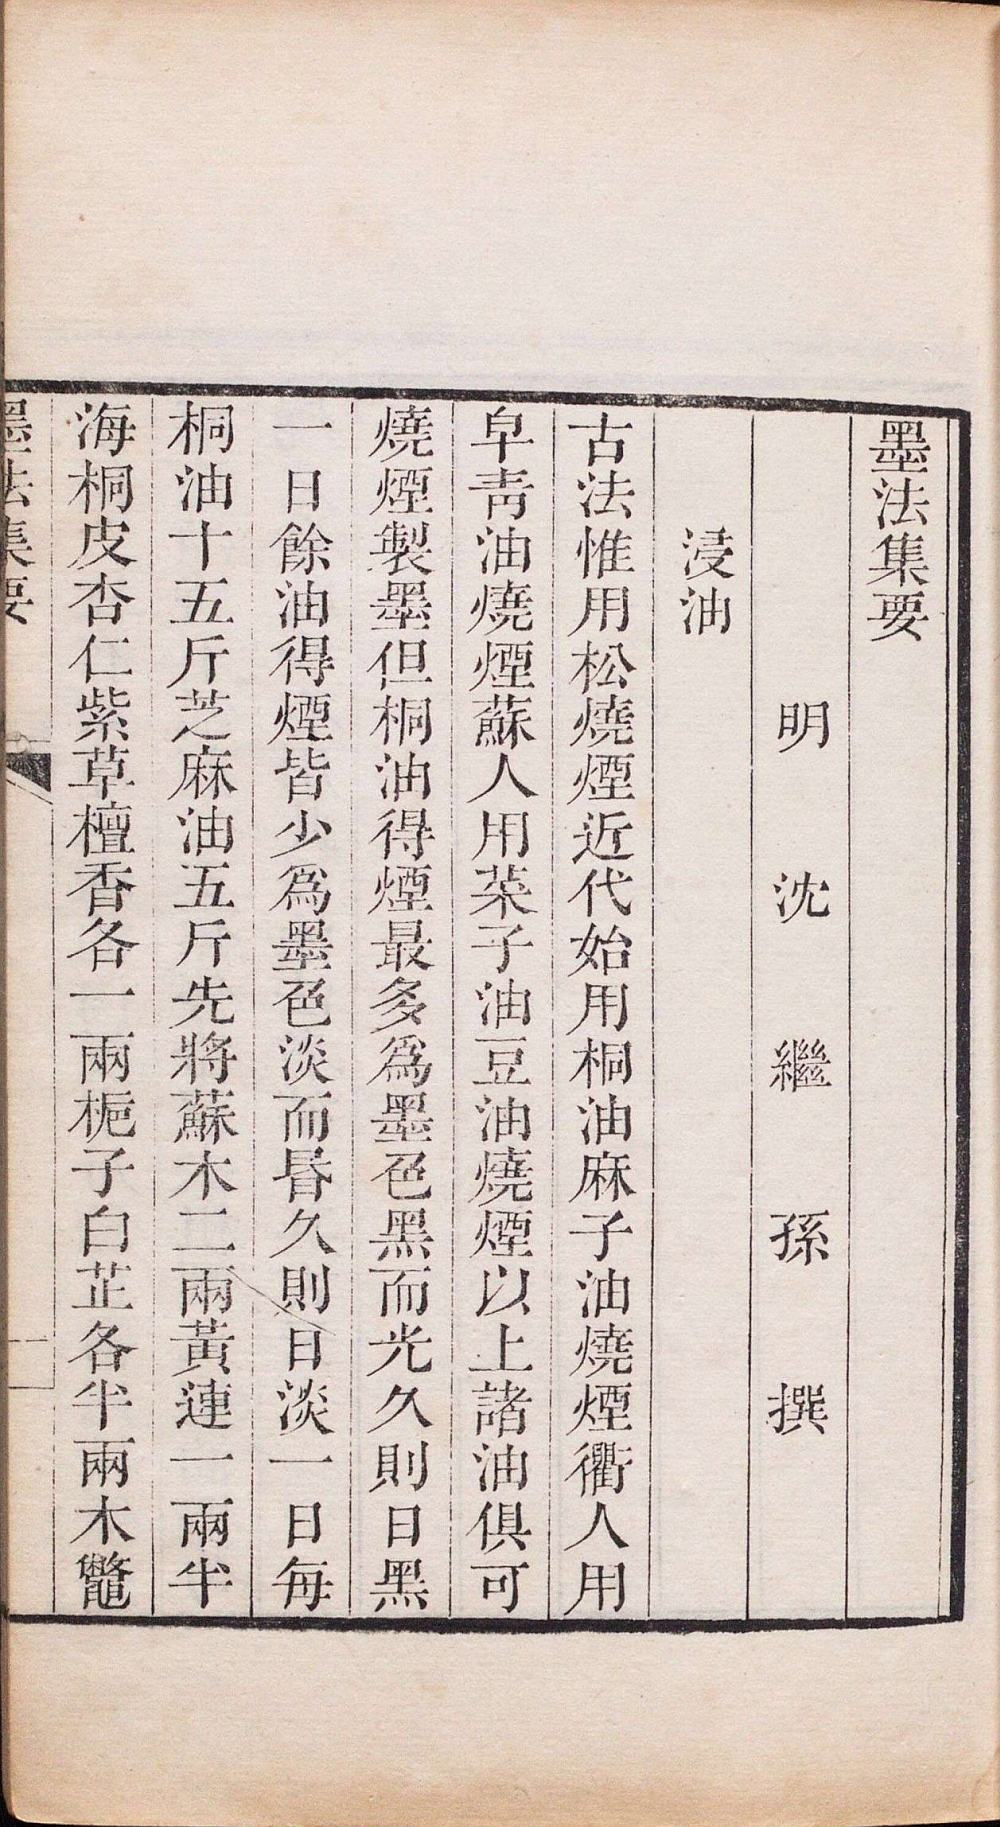 墨法集要
明沈繼孫撰
浸油
古法惟用松燒煙近代始用桐油麻子油燒煙衢人用
皁靑油燒煙蘇人用菜子油豆油燒煙以上諸油俱可
燒煙製墨但桐油得煙最多爲墨色黑而光久則日黑
一日餘油得煙皆少爲墨色淡而昬久則日淡一日每
桐油十五斤芝麻油五斤先將蘇木二兩黃連一兩半
海桐皮杏仁紫草檀香各一兩梔子白芷各半兩木鼈
墨法集要